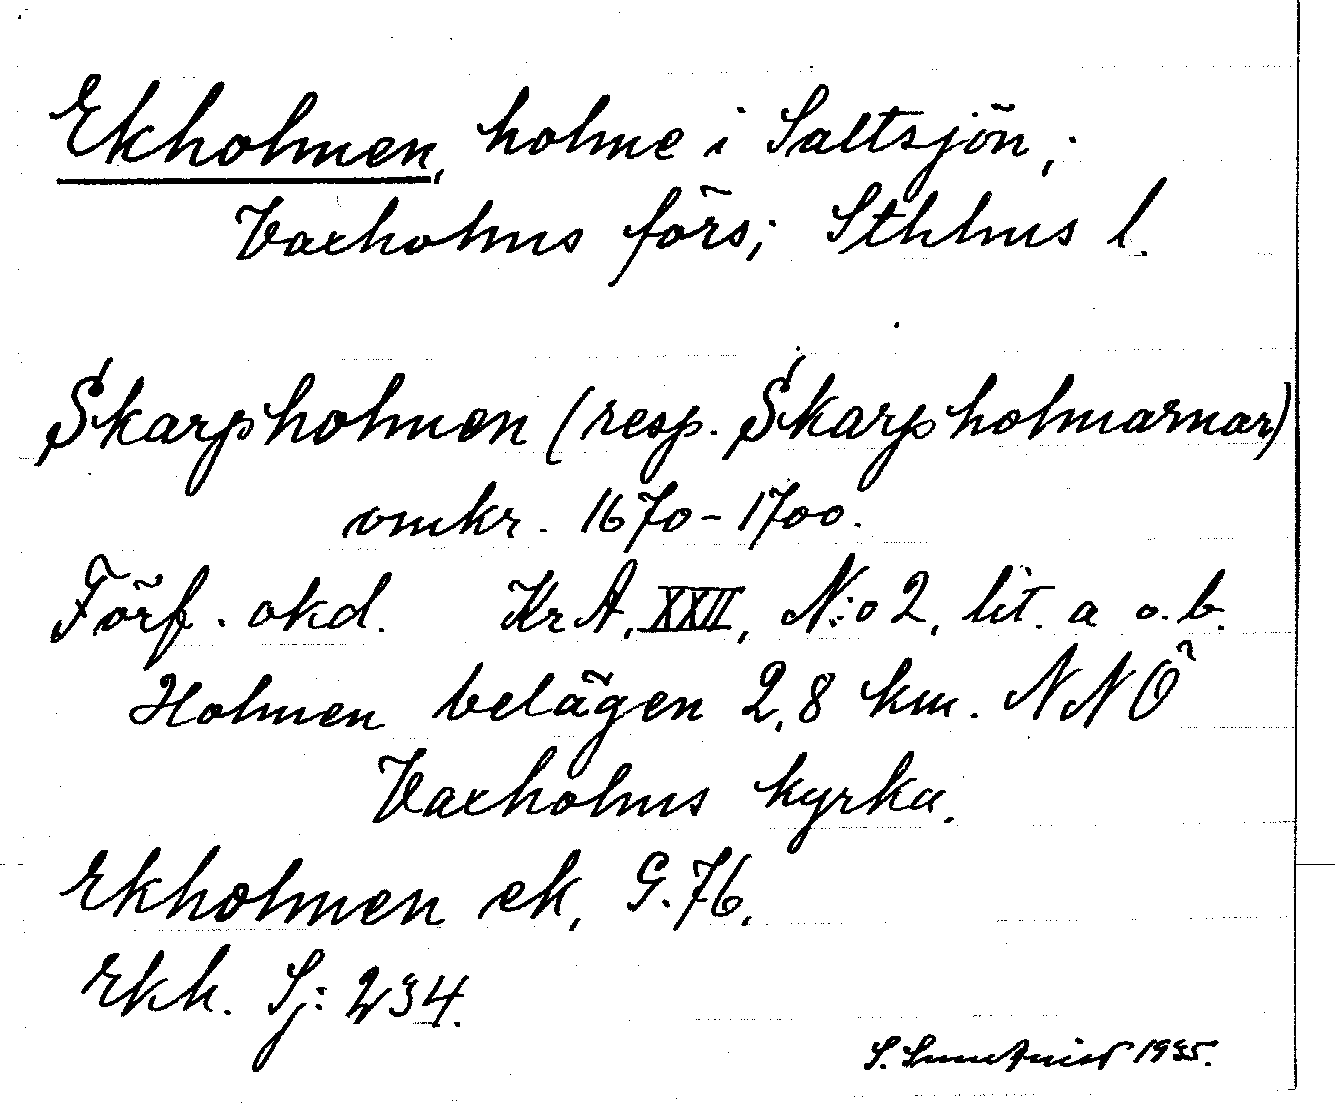 Ekholmen, holme i Saltsjön,
Vaxholms förs; Sthlms l.
Skarpholmen (resp. Skarpholmarnar)
omkr. 1670-1700.
Förf. okd. KrA, XXII, N:o 2, lit. a o. b.
Holmen belägen 2,8 km. NNÖ
Vaxholms kyrka.
Ekholmen ek, G.76.
Ekh. Sj: 234.
S. 1935.